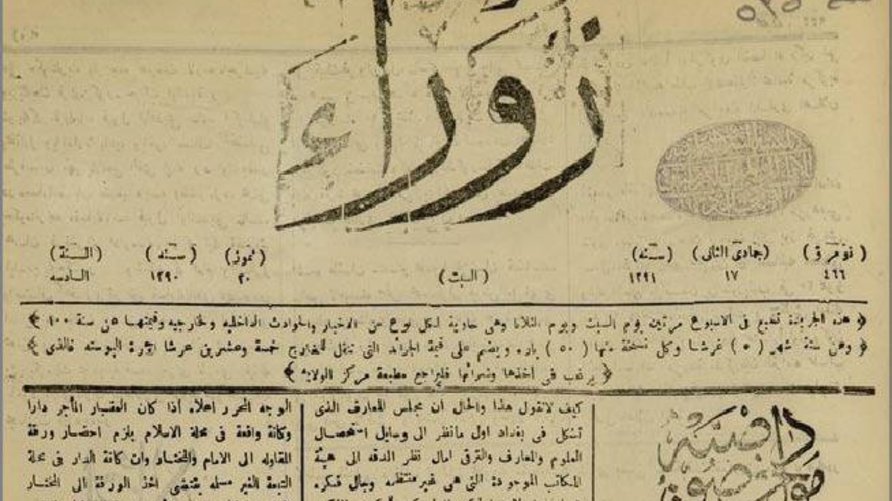 زوراء
(نومرو) (جمادى الثانى) (سنه) (تموز) (سنه) (السنة)
٤٦٦ ١٧ ١٢٩١ (السبت) ٢٠ ١٢٩٠ السادسه
﴿ هذه الجريدة تطبع فى الاسبوع مرتين يوم السبت ويوم الثلاثا وهى حاوية لكل نوع من الاخبار والحوادث الداخليه والخارجيه وقيمتها عن سنة ١٠٠ ﴾
﴿ وعن ستة شهر (٥٠) غرشا وكل نسخة منها (٥٠) باره ويضم على قيمة الجرائد التى تنقل للخارج خمسة وعشرين غرشا اجرة البوسته فالذى ﴾
﴿ يرغب فى اخذها وشرائها فليراجع مطبعة مركز الولايه ﴾
داخليه
كيف لانقول هذا والحال ان مجلس المعارف الذى
تشكل فى بغداد اول مانظر الى وسايل استحصال
العلوم والمعارف والترقى امال نظر الدقه الى هيئة
المكاتب الموجودة التى هى غير منتظمه وجال فكره
الوجه المحرر اعلاه اذا كان العقار المأجر دارا
وكانة واقعة فى محلة الاسلام يلزم احضار ورقة
المقاوله الى الامام والمختار وان كانة الدار فى محلة
التبعة الغير مسلمه يقتضى اخذ الورقة الى المختار